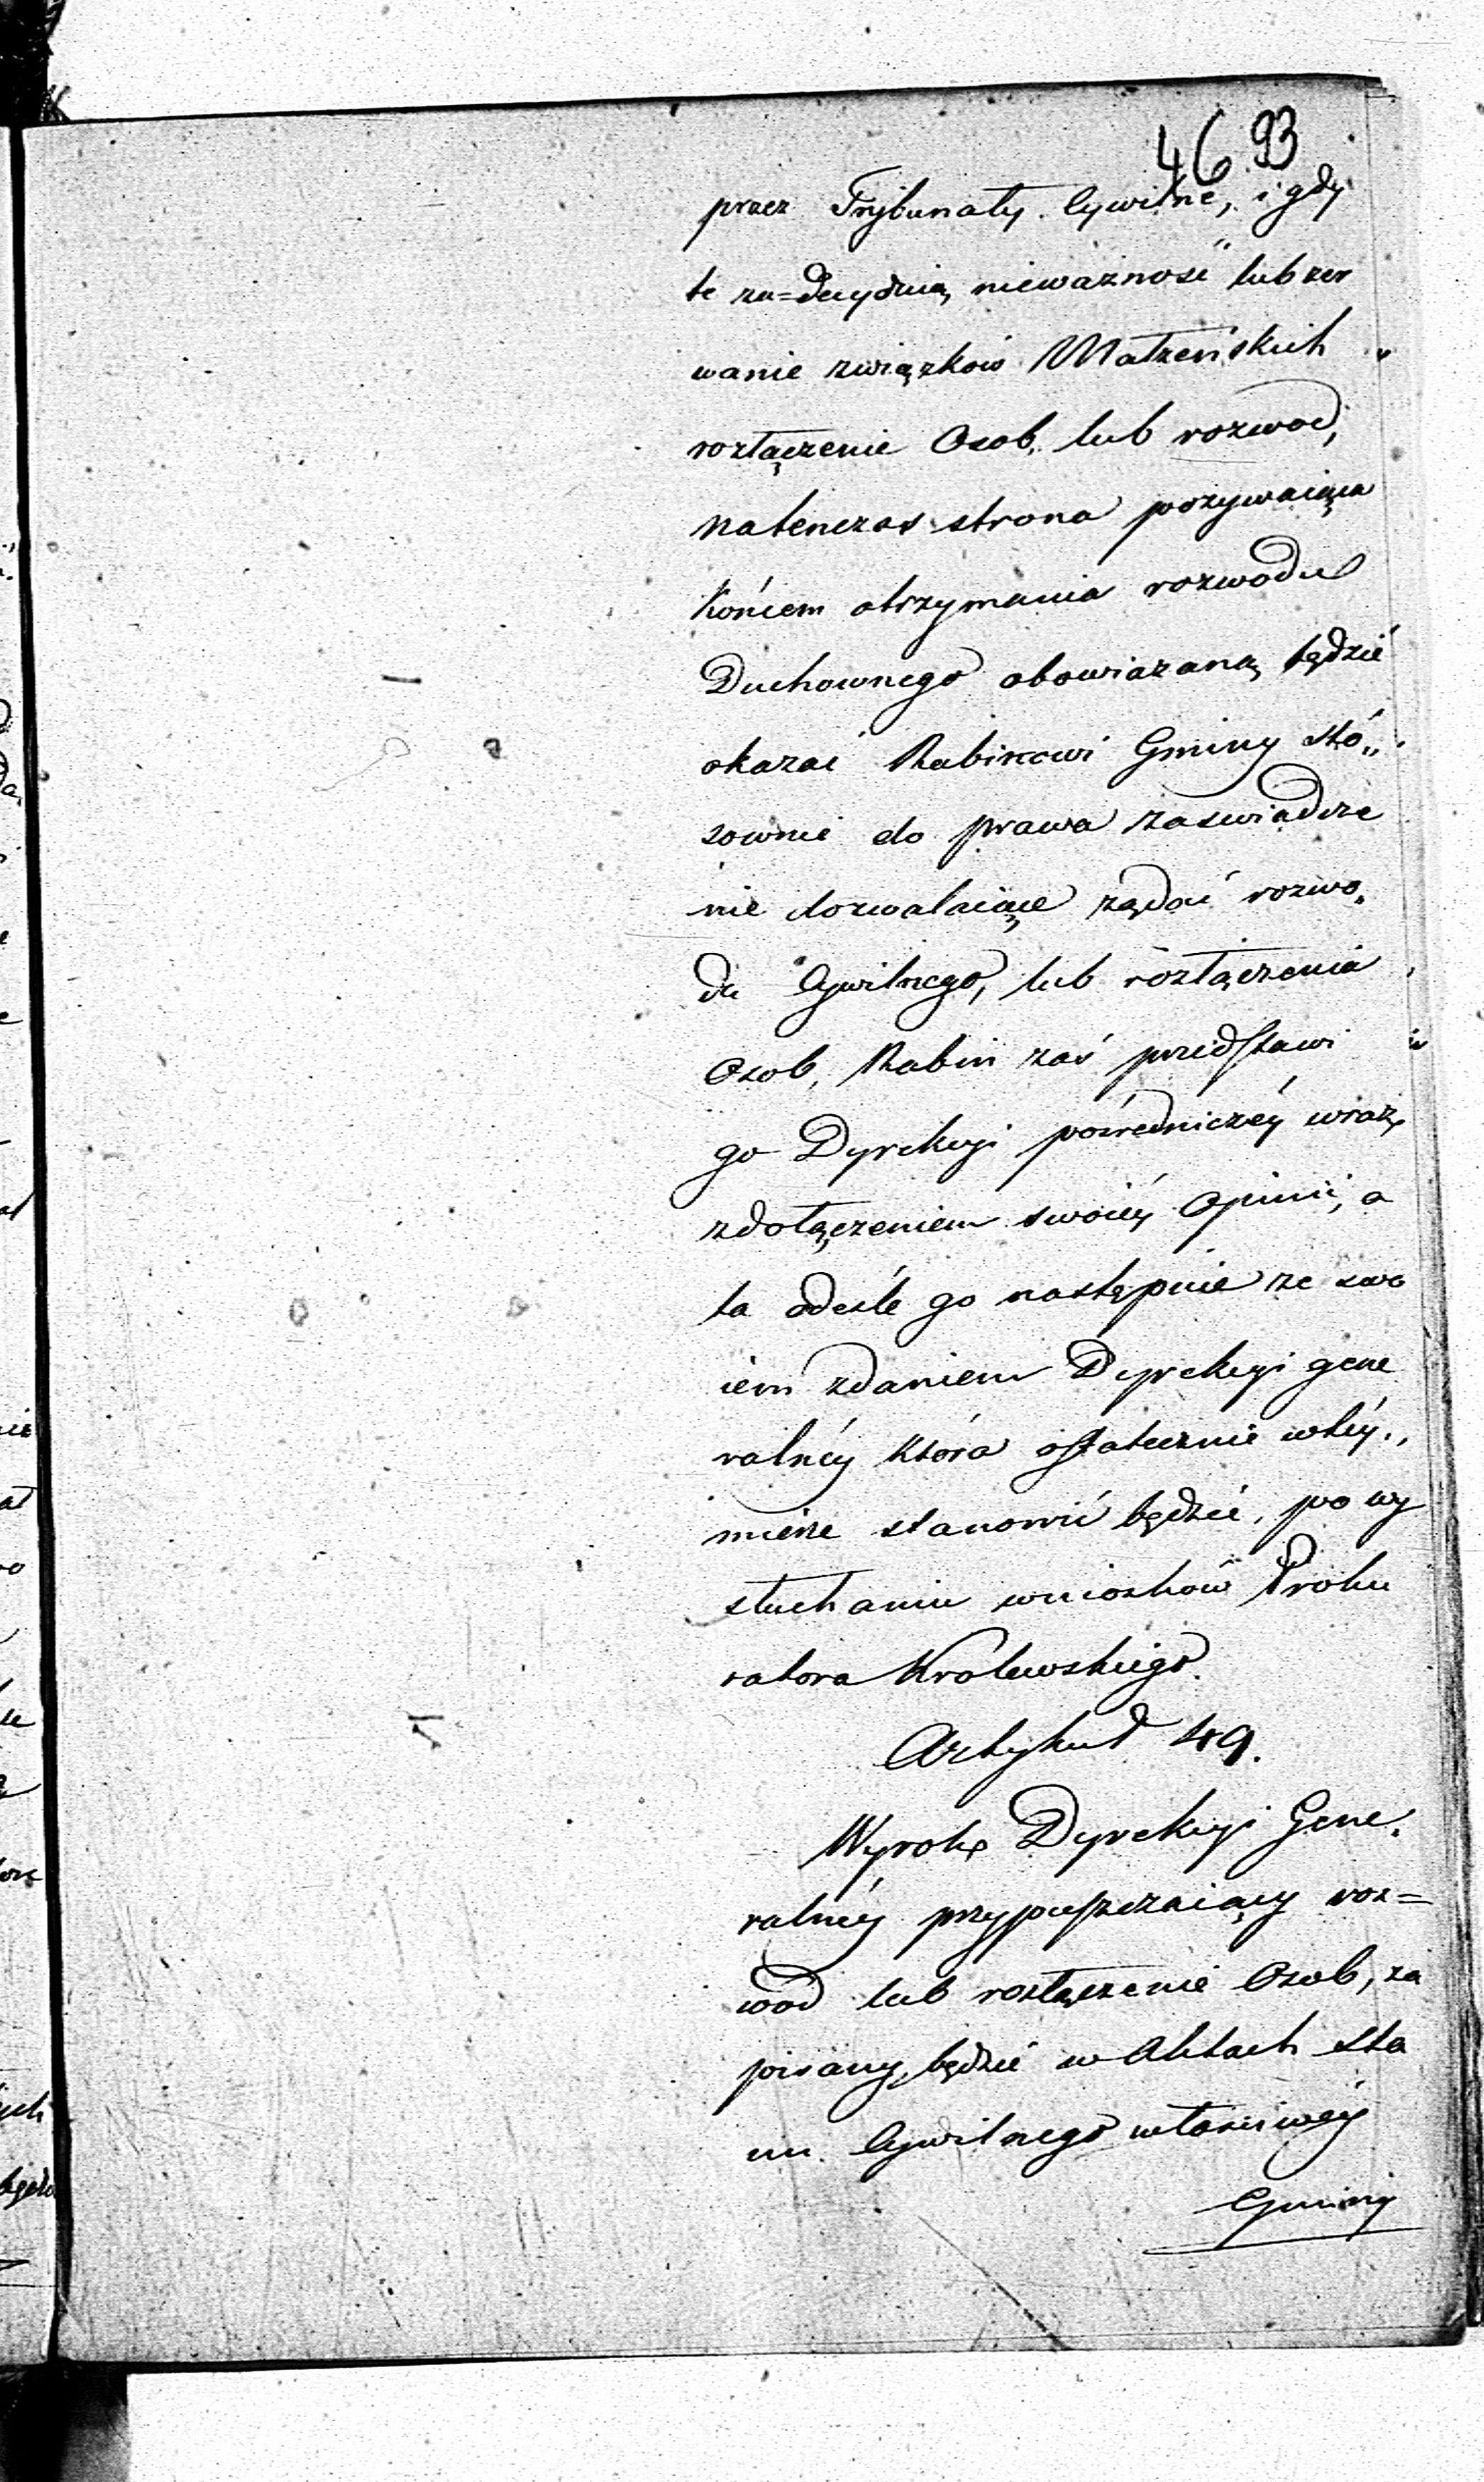 46 93
przez Trybunały Cywilne, i gdy
te za=decydują nieważność lub zer
wanie związków Małżeńskich
rozłączenie Osob, lub rozwod,
natenczas strona pozywaiąca
końcem otrzymania rozwodu
Duchownego obowiazaną będzie
okazać Rabinowi Gminy stó„
sownie do prawa zaswiadcze
nie dozwalaiące żądać rozwo„
du Cywilnego, lub rozłączenia
Osob, Rabin zaś przedstawi
go Dyrekcyi pośredniczéy wraz
z dołączeniem swoiéy Opinii, a
ta odeśle go następnie ze swo
iem zdaniem Dyrekcyi gene
ralnéy która ostatecznie w téy„
mierze stanowić będzie, po wy
słuchaniu wniosków Proku
ratora Królewskiego.
Artykuł 49.
Wyrok Dyrekcyi Gene„
ralnéy przypuszczaiący roz=
wód lub rozłączenie Osob, za
pisany będzie w Aktach Sta
nu Cywilnego własciwéy
Gminy